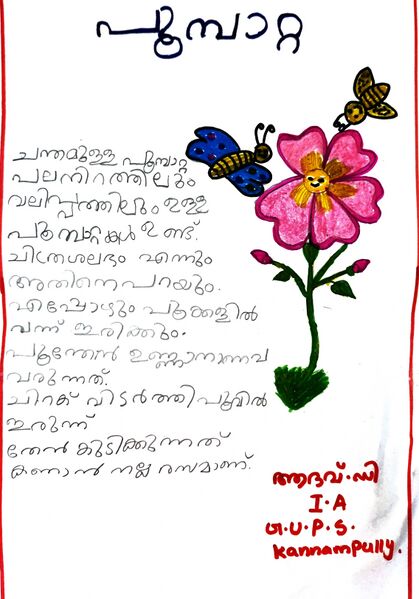 പൂമ്പാറ്റ
ചന്തമുള്ള പൂമ്പാറ്റ
പലനിറത്തിലും
വലിപ്പത്തിലും ഉള്ള
പൂമ്പാറ്റകൾ ഉണ്ട്.
ചിത്രശലഭം എന്നും
അതിനെപറയും.
എപ്പോഴും പൂക്കളിൽ
വന്ന് ഇരിക്കും.
പൂന്തേൻ ഉണ്ണാനാണവ
വരുന്നത്.
ചിറക് വിടർത്തിപൂവിൽ
ഇരുന്ന്
തേൻ കുടിക്കുന്നത്
കണാൻ നല്ല രസമാണ്.
ആദവ്.സി
I.A
G.U.P.S.
Kannampully.